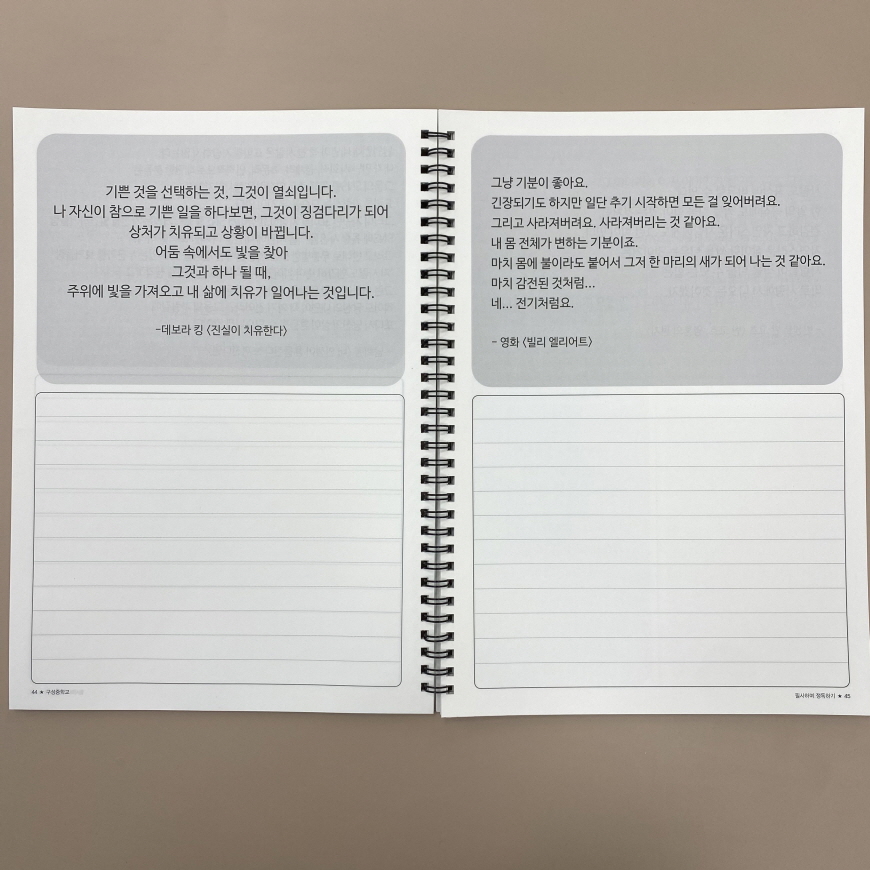 기쁜 것을 선택하는 것, 그것이 열쇠입니다.
나 자신이 참으로 기쁜 일을 하다보면, 그것이 징검다리가 되어
상처가 치유되고 상황이 바뀝니다.
어둠 속에서도 빛을 찾아
그것과 하나 될 때,
주위에 빛을 가져오고 내 삶에 치유가 일어나는 것입니다.
-데보라 킹 <진실이 치유한다>
44 ★ 구성중학교
그냥 기분이 좋아요.
긴장되기도 하지만 일단 추기 시작하면 모든 걸 잊어버려요.
그리고 사라져버려요. 사라져버리는 것 같아요.
내 몸 전체가 변하는 기분이죠.
마치 몸에 불이라도 붙어서 그저 한 마리의 새가 되어 나는 것 같아요.
마치 감전된 것처럼...
네... 전기처럼요.
- 영화 <빌리 엘리어트>
필사하며 정독하기 ★ 45